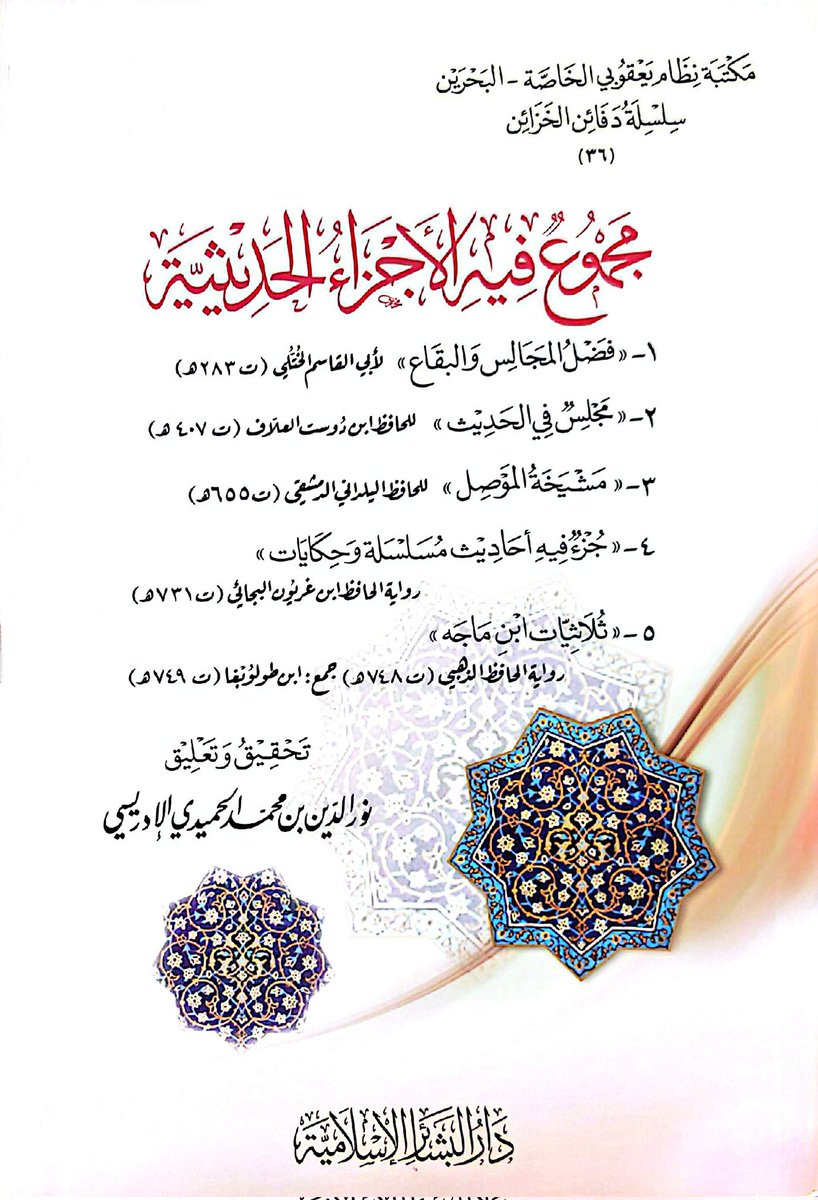 مَكْتَبَة نِظَام يَعْقُوبي الخَاصَّة - البَحْرَيْن
سِلْسِلَة دَفَائِن الخَزَائِن
(٣٦)
مَجْمُوعٌ فِيهِ الأَجْزَاءُ الحَدِيثِيَّة
١ - «فَضْلُ المَجَالِس وَالبِقَاع» لأبي القاسم الخُتُّلي (ت ٢٨٣هـ)
٢ - «مَجْلِسٌ فِي الحَدِيث» للحافظ ابن دُوست العلاف (ت ٤٠٧هـ)
٣ - «مَشْيَخَةُ المَوْصِل» للحافظ اليلداني الدمشقي (ت ٦٥٥هـ)
٤ - «جُزْءٌ فِيهِ أحَادِيث مُسَلْسَلَة وَحِكَايَات»
رواية الحافظ ابن غريون البجائي (ت ٧٣١هـ)
٥ - «ثُلَاثِيَّات ابْنِ مَاجَه»
رواية الحافظ الذهبي (ت ٧٤٨هـ) جمع: ابن طولوبغا (ت ٧٤٩هـ)
تَحْقِيقُ وَتَعْلِيق
نور الدّين بن محمّد الحميدي الإدريسي
دَارُ البَشَائِرِ الإِسْلَامِيَّة